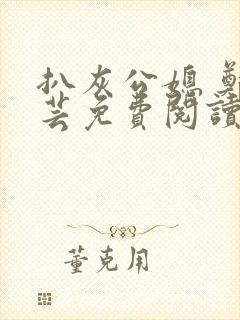 扒灰公媳
芸免費閱讀
董克用